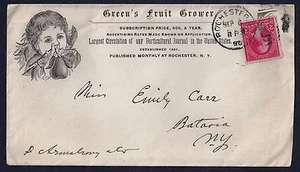 Green's Fruit Grower
SUBSCRIPTION PRICE, 50C. A YEAR.
ADVERTISING RATES MADE KNOWN ON APPLICATION.
Largest Circulation of any Horticultural Journal in the United States.
ESTABLISHED 1881.
PUBLISHED MONTHLY AT ROCHESTER, N. Y.
ROCHESTER
SEP
Miss Emily Carr
Batavia
N.Y.
Armstrong